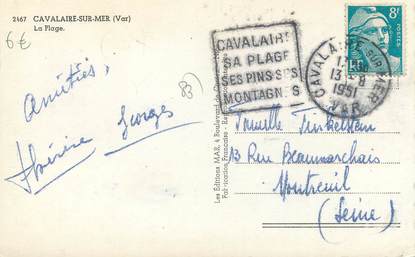 2467 CAVALAIRE-SUR-MER (Var)
La Plage.
6€
CAVALAIRE
SA PLAGE
SES PINS SES
MONTAGNES
CAVALAIRE-SUR-MER
13-8
1951
VAR
8F
Amitiés,
Georges
Thérèse
83
Les Éditions MAR, 4 Boulevard de
Fabrication Française
Famille Finkelstein
13 Rue Beaumarchais
Montreuil
(Seine)